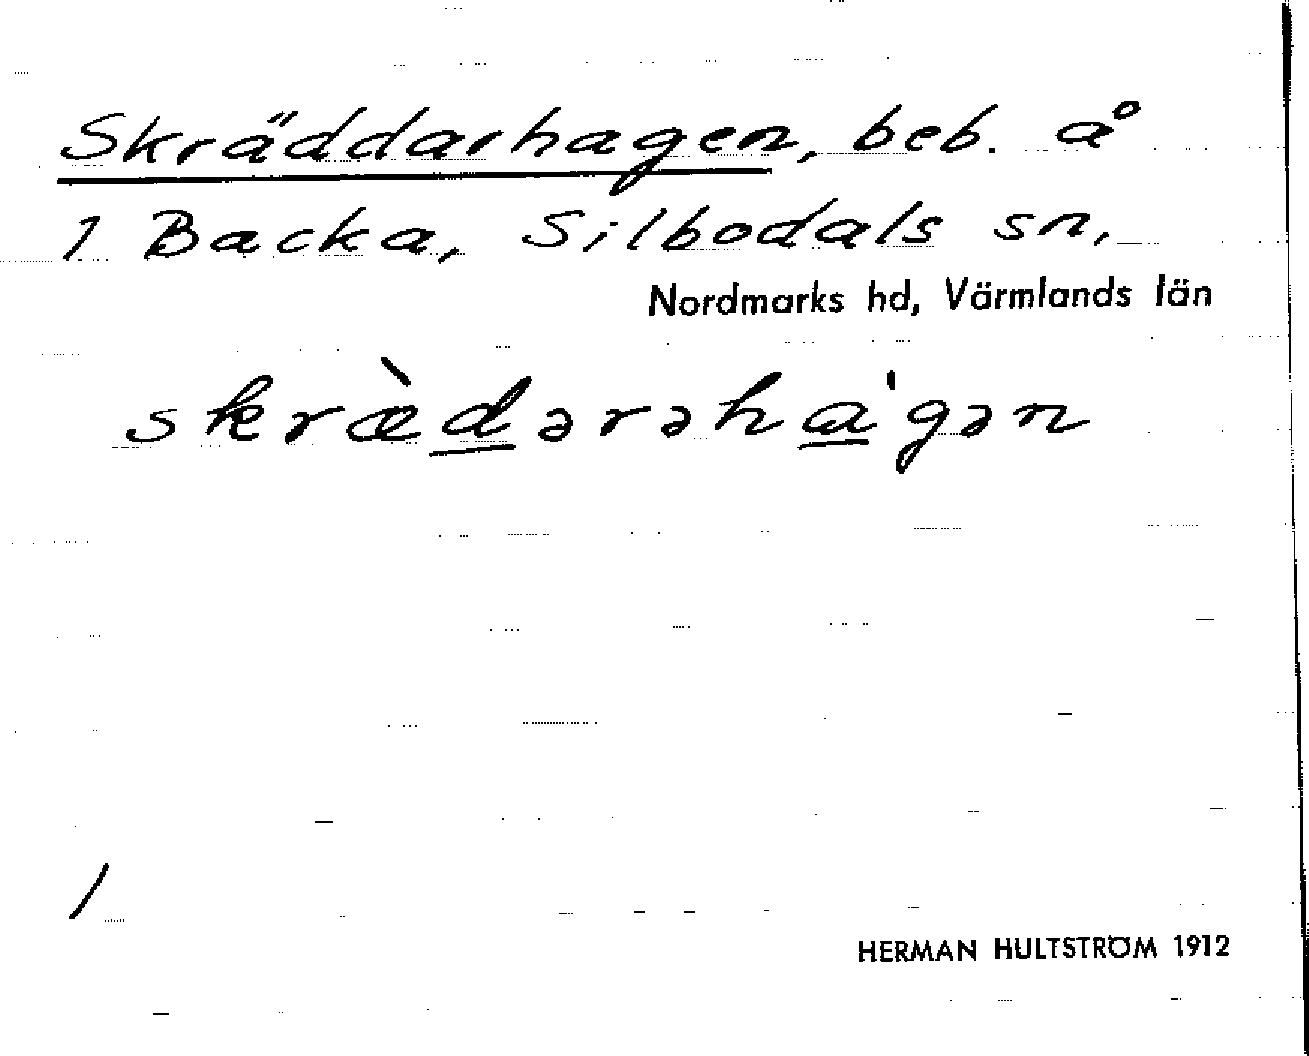 Skräddarhagen, beb. å
1 Backa, Silbodals sn,
Nordmarks hd, Värmlands län
skræ̀dərəha'gən
/
HERMAN HULTSTRÖM 1912